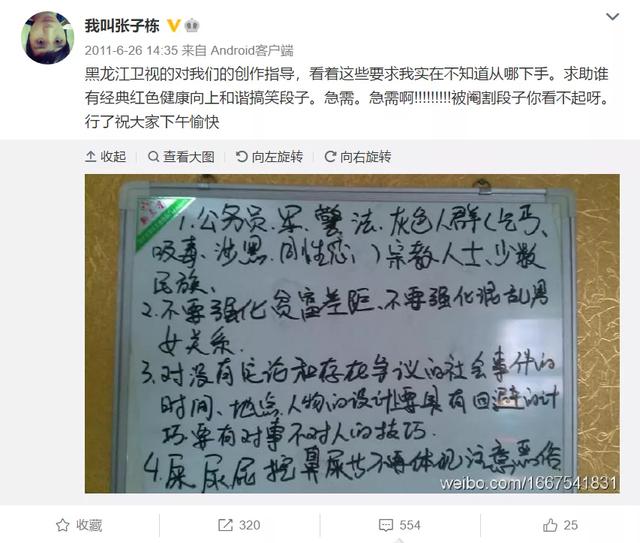 我叫张子栋
2011-6-26 14:35 来自 Android客户端
黑龙江卫视的对我们的创作指导，看着这些要求我实在不知道从哪下手。求助谁
有经典红色健康向上和谐搞笑段子。急需。急需啊!!!!!!!!!被阉割段子你看不起呀。
行了祝大家下午愉快
收起 查看大图 向左旋转 向右旋转
1.公务员、军、警、法、灰色人群(乞丐、
吸毒、涉黑、同性恋、)宗教人士、少数
民族、
2.不要强化贫富差距、不要强化混乱男
女关系.
3.对没有定论和存在争议的社会事件的
时间、地点、人物的设计要具有回避的计
巧要有对事不对人的技巧.
4.屎尿屁挖鼻屎等不要体现注意恶俗
weibo.com/1667541831
收藏 320 554 25